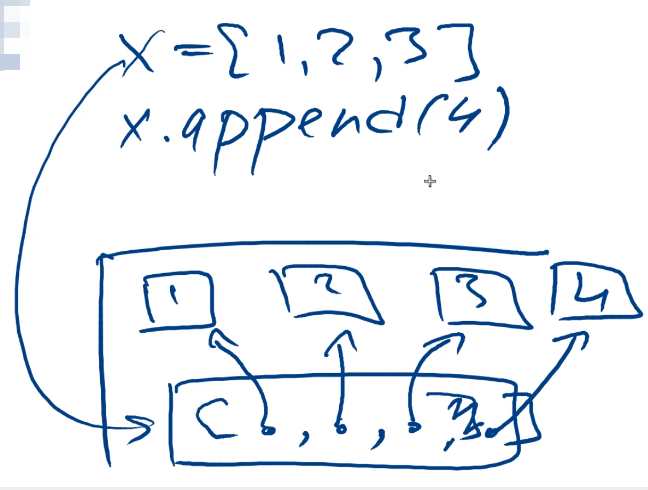 x = [1,2,3]
x.append(4)
1 2 3 4
[ . , . , . , . ]